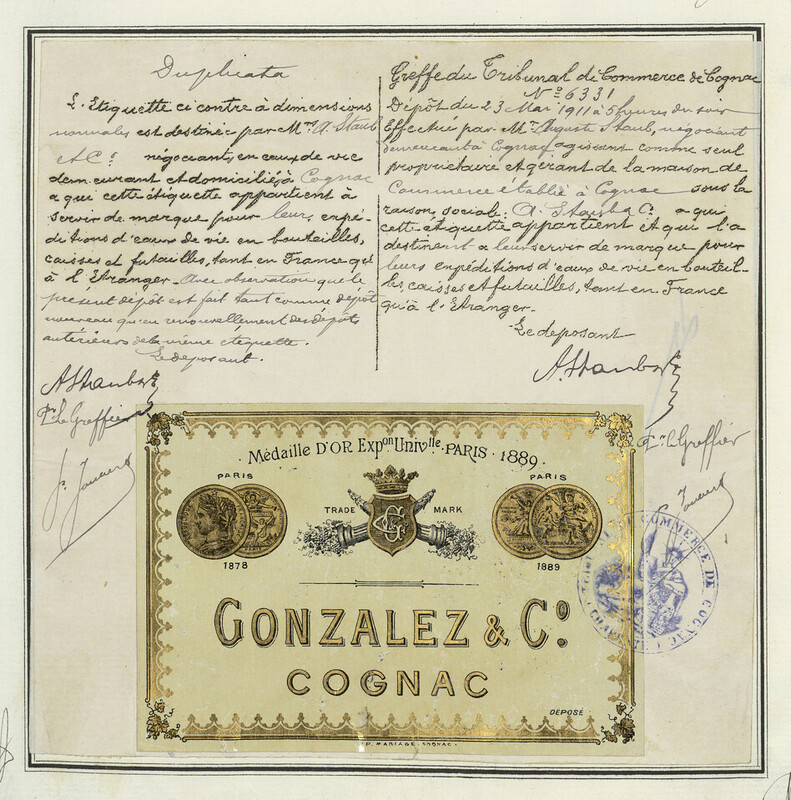 Duplicata
L'Etiquette ci contre à dimensions
normales est destinée par Mr. A. Staub
et Co. négociants en eaux de vie
demeurant et domiciliés à Cognac
a qui cette étiquette appartient à
servir de marque pour leur, expé-
ditions d'eaux de vie en bouteilles,
caisses et futailles, tant en France qu'
à l'Etranger. Avec observation que le
présent dépôt est fait tant comme dépôt
nouveau qu'en renouvellement des dépôts
antérieurs de la même étiquette.
Le deposant.
A Staub & Co
Pr. le Greffier
Greffe du Tribunal de Commerce de Cognac
No 6331
Dépôt du 23 Mai 1911 à 5 heures du soir
Effectué par Mr. Auguste Staub, négociant
demeurant à Cognac agissant comme seul
propriétaire et gérant de la maison de
Commerce établie à Cognac sous la
raison sociale: A. Staub & Co. a qui
cette étiquette appartient et qui l'a
destinent a leur servir de marque pour
leurs expéditions d'eaux de vie en bouteil-
les, caisses et futailles, tant en France
qu'à l'Etranger.
Le deposant
A. Staub & Co
Pr. le Greffier
Médaille D'OR Expon Univlle PARIS · 1889 ·
PARIS
PARIS
TRADE MARK
1878
1889
GONZALEZ & Co.
COGNAC
DÉPOSÉ
IMP. MARIAGE, COGNAC.
COMMERCE DE COGNAC